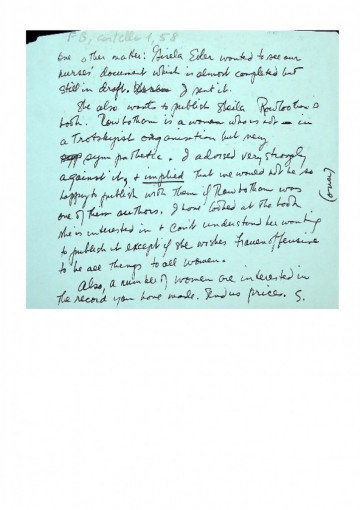 FB, cartella 1, 58
one other matter: Gisela Eder wanted to see our
nurses' document which is almost completed but
still in draft. I sent it.
She also wants to publish Sheila Rowbotham's
book. Rowbotham is a woman who is not — in
a Trotskyist organisation but very
sympathetic. I advised very strongly
against it, & implied that we would not be so
happy to publish with them if Rowbotham was
one of their authors. I have looked at the book
she is interested in & can't understand her wanting
to publish it except if she wishes Frauenoffensive
to be all things to all women.
Also, a number of women are interested in
the record you have made. Send us prices. S.
(over)